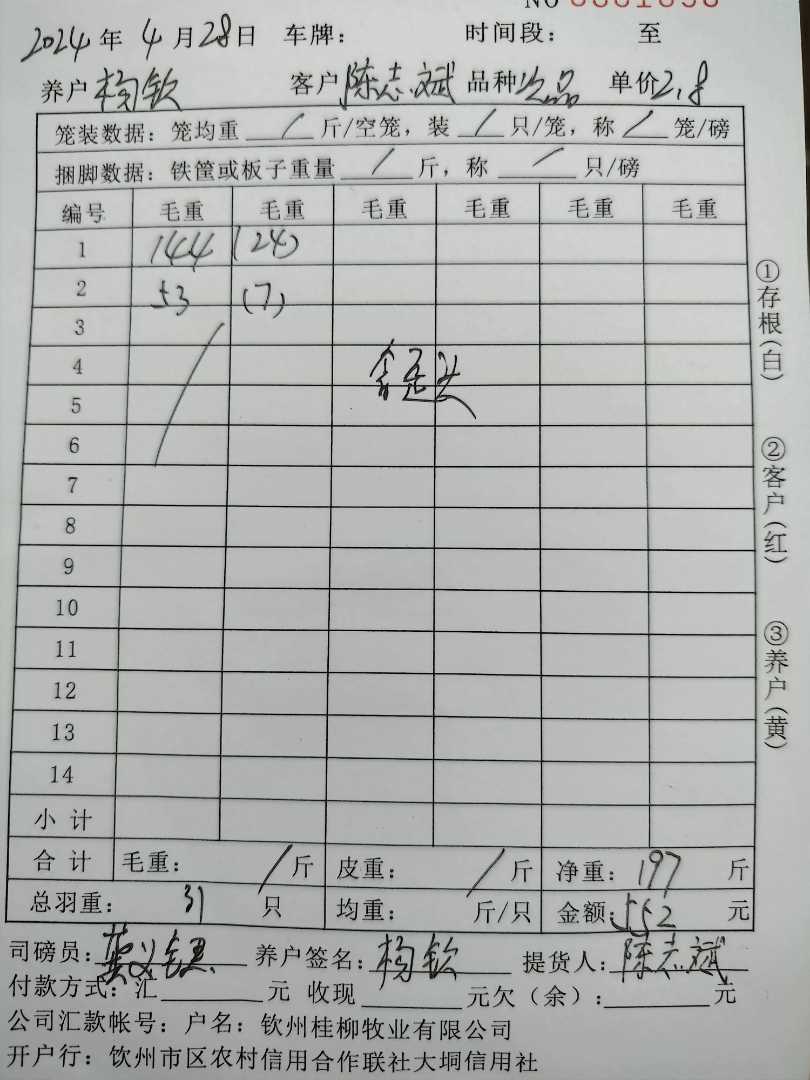 NO
2024年4月28日 车牌： 时间段： 至
养户 杨钦 客户 陈志斌 品种 次品 单价 2.8
笼装数据：笼均重 / 斤/空笼，装 / 只/笼，称 / 笼/磅
捆脚数据：铁筐或板子重量 / 斤，称 / 只/磅
编号 毛重 毛重 毛重 毛重 毛重 毛重
1 144 (24)
2 53 (7)
3
4
5
6
7
8
9
10
11
12
13
14
小计
合计 毛重： / 斤 皮重： / 斤 净重：197 斤
总羽重： 31 只 均重： 斤/只 金额：552 元
司磅员： 养户签名：杨钦 提货人：陈志斌
付款方式：汇 元 收现 元欠（余）： 元
公司汇款帐号：户名：钦州桂柳牧业有限公司
开户行：钦州市区农村信用合作联社大垌信用社
①存根(白)
②客户(红)
③养户(黄)